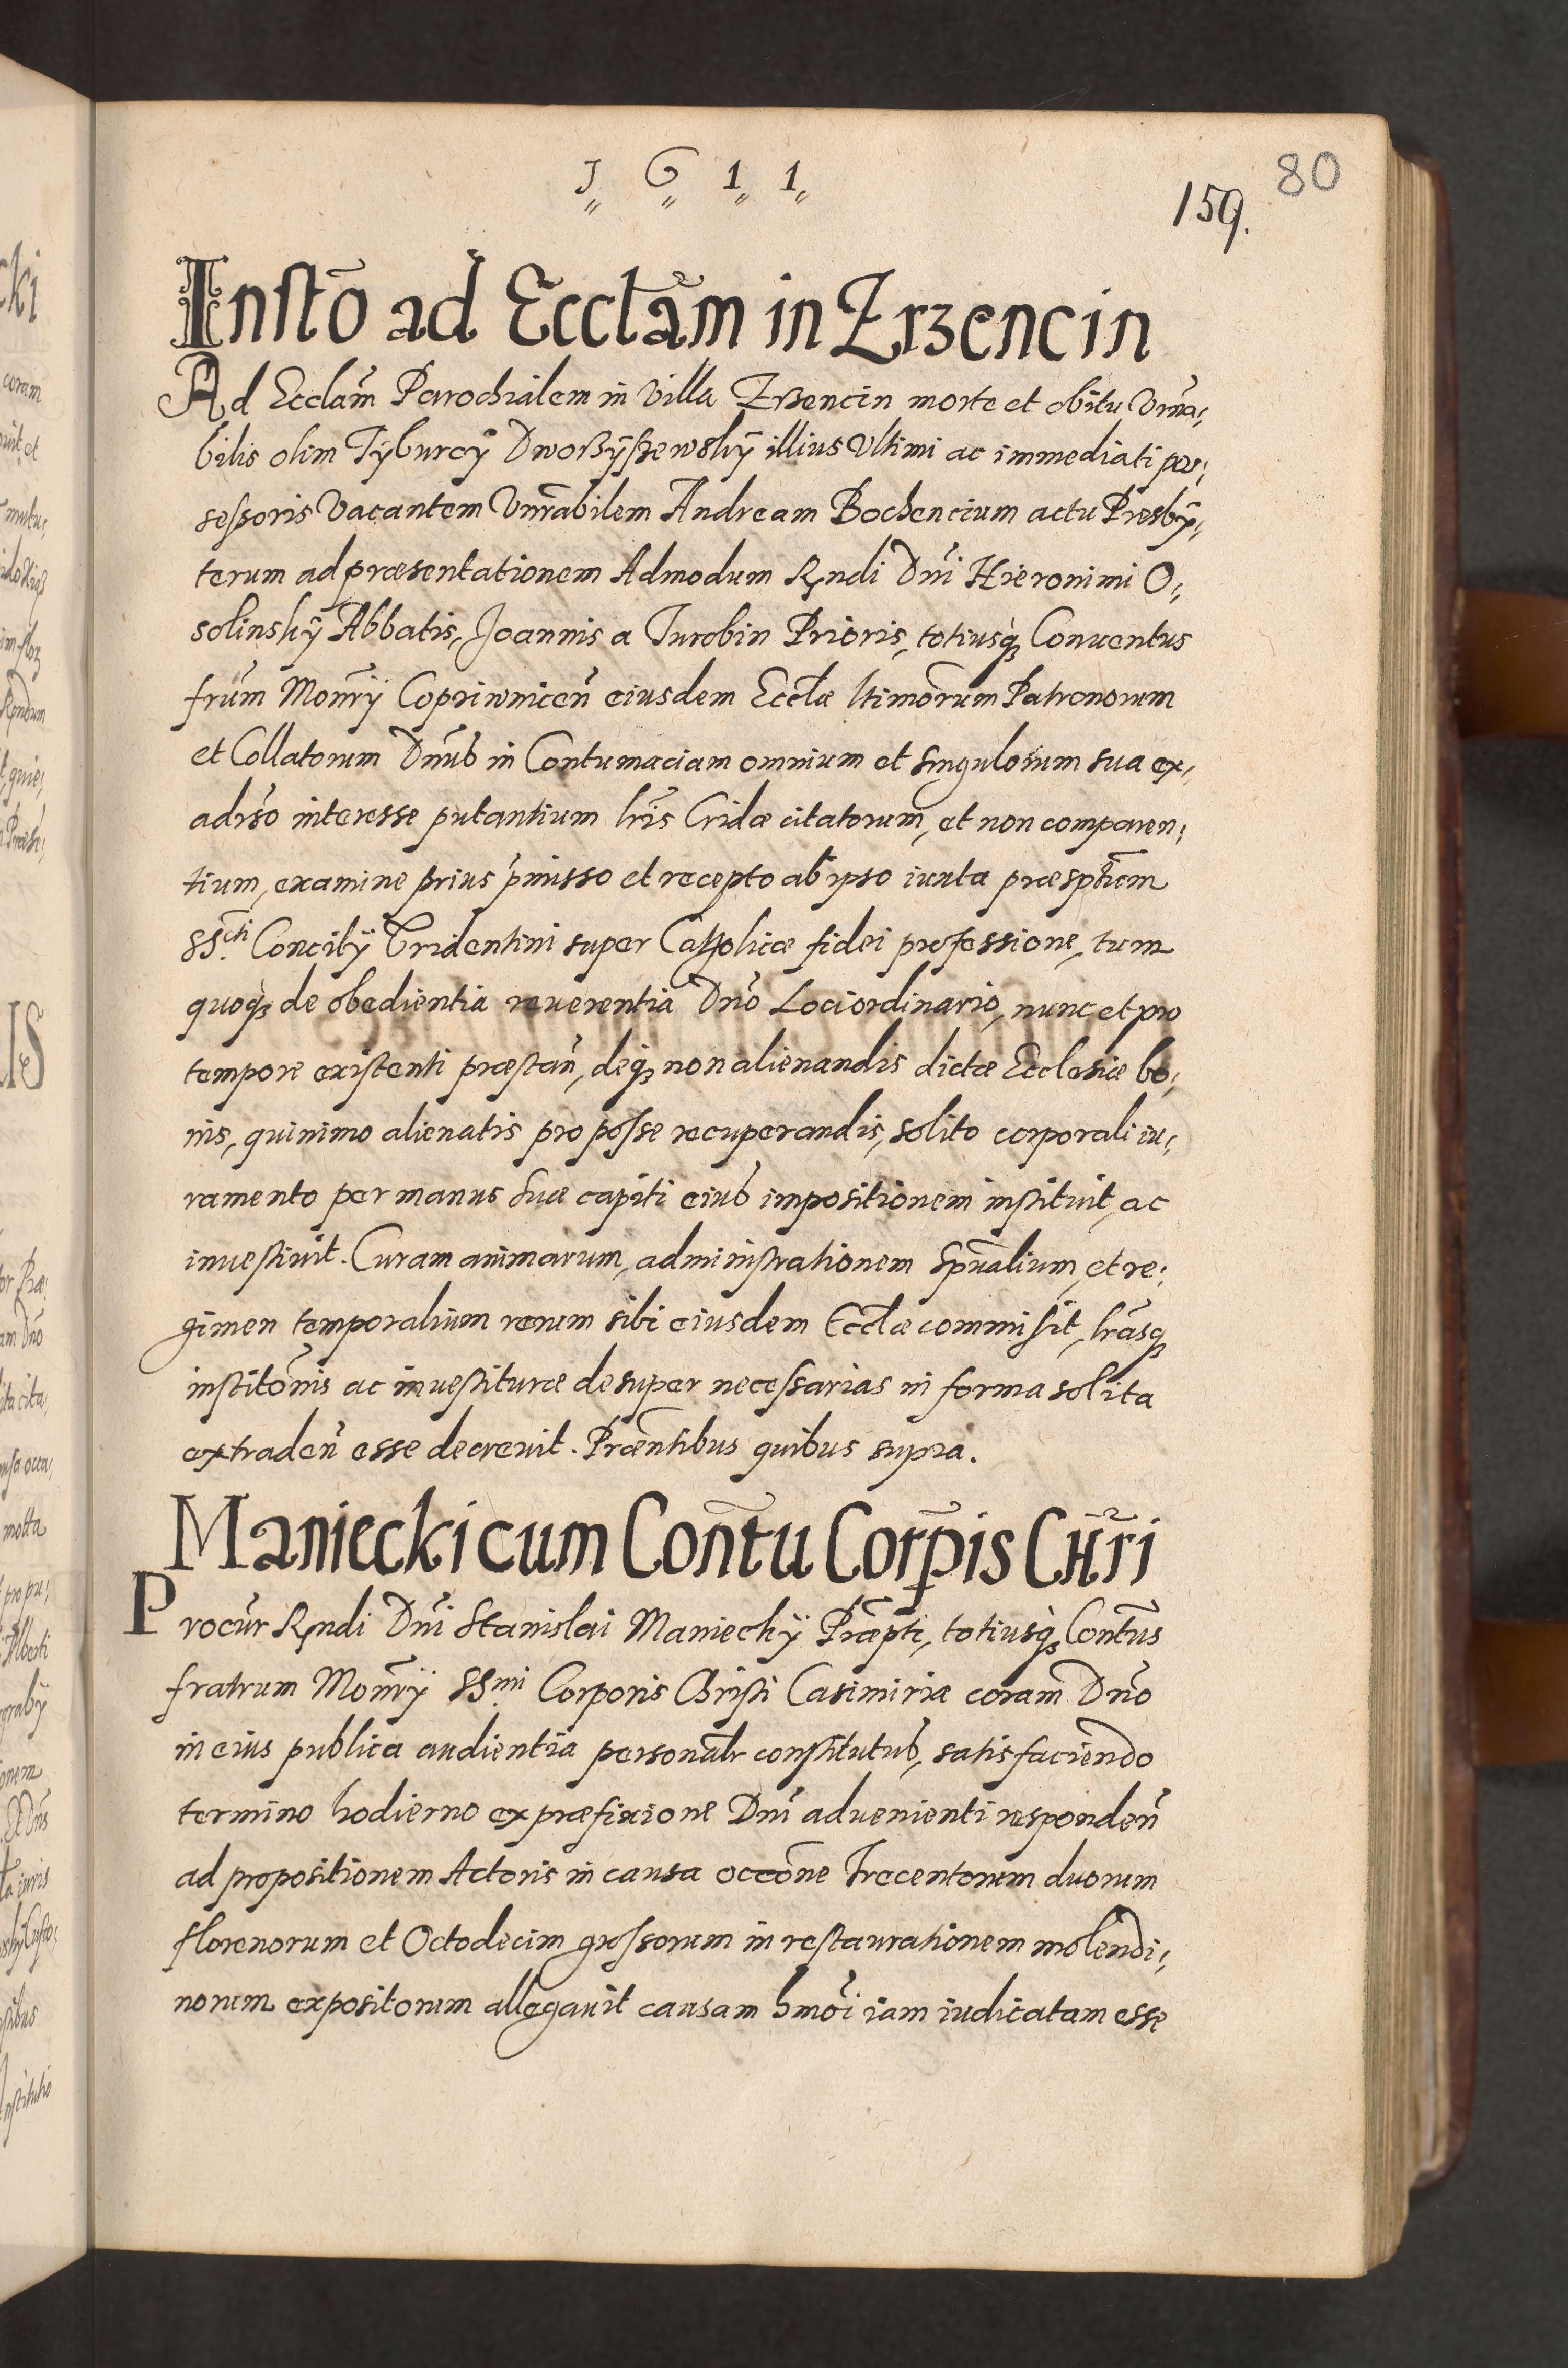 J 6 1 1
80
159.
Instõ ad Ecclãm in Zrzencin
Ad Ecclãm Parochialem in villa Zrzencin morte et obitu Vnra,
bilis olim Tÿburcÿ illius Vltimi ac immediati pos,
sessoris Vacantem Vnrabilem Andream Bochencium actu Presbÿ,
terum ad præsentationem Admodum Rndi Dni Hieronimi O,
solinskÿ Abbatis, Joannis a Turobin Prioris, totiusq₃ Conuentus
frũm Monrÿ Copriwnicen̄ eiusdem Ecclæ ltimorum Patronorum
et Collatorum Dnus in Contumaciam omnium et singulorum sua ex,
adrso interesse putantium lris Cridæ citatorum, et non comparen,
tium, examine prius p̄misso et recepto ab ipso iuxta præsptiem
SS.cti Concilÿ Tridentini super Catholicæ fidei professione, tum
quoq₃ de obedientia reuerentia Dno Lociordinario, nunc et pro
tempore existenti præstan̄, deq₃ non alienandis dictæ Ecclesiæ bo,
nis, quinimo alienatis pro posse recuperandis, solito corporali iu,
ramento per manus suæ capiti eius impositionem instituit, ac
inuestiuit. Curam animarum, administrationem Spũalium, et re,
gimen temporalium rerum sibi eiusdem Ecclæ commisit, lrasq₃
institõnis ac inuestituræ desuper necessarias in forma solita
extraden̄ esse decreuit. Præntibus quibus supra.
Maniecki cum Con̄tu Corp̄is CHr̄i
Procũr Rndi Dni Stanislai Maniecky Præpti, totiusq₃ Contus
fratrum Monrÿ SS.mi Corporis Christi Casimiriæ coram Dno
in eius publica audientia personalr constitutus, satisfaciendo
termino hodierno ex præfixione Dni aduenienti responden̄
ad propositionem Actoris in causa occone Trecentorum duorum
florenorum et Octodecim grossorum in restaurationem molendi,
norum expositorum allegauit causam hmoi iam iudicatam esse